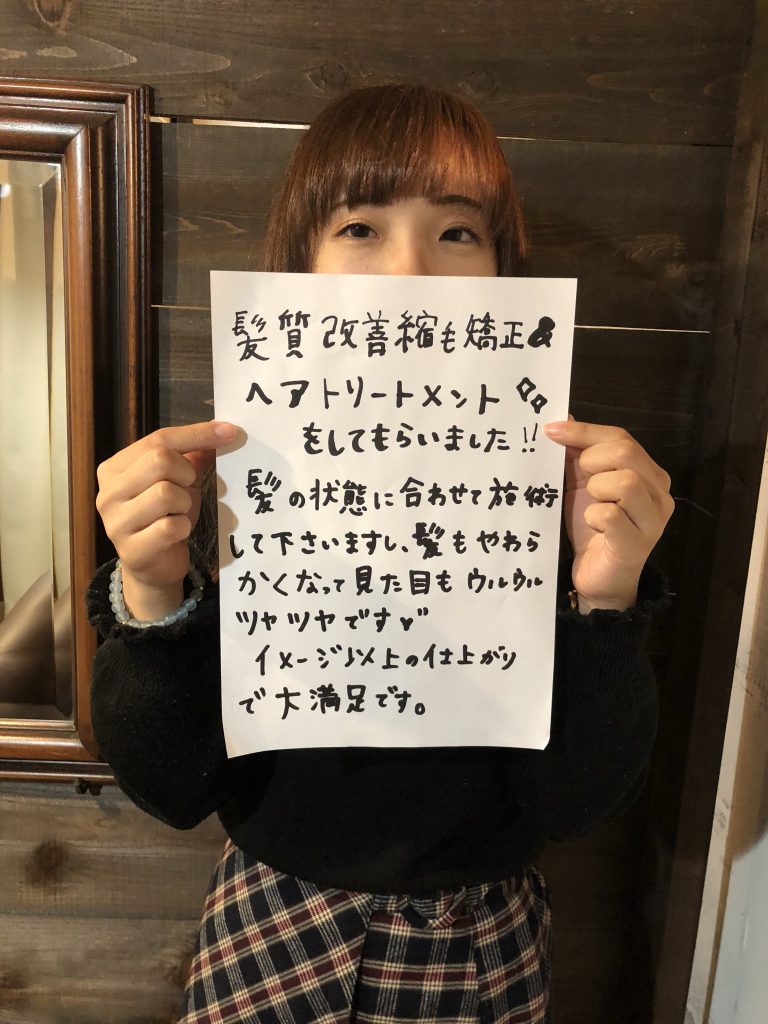 髪質改善縮毛矯正&
ヘアトリートメント
をしてもらいました!!
髪の状態に合わせて施術
して下さいますし、髪もやわら
かくなって見た目もウルウル
ツヤツヤです♡
イメージ以上の仕上がり
で大満足です。